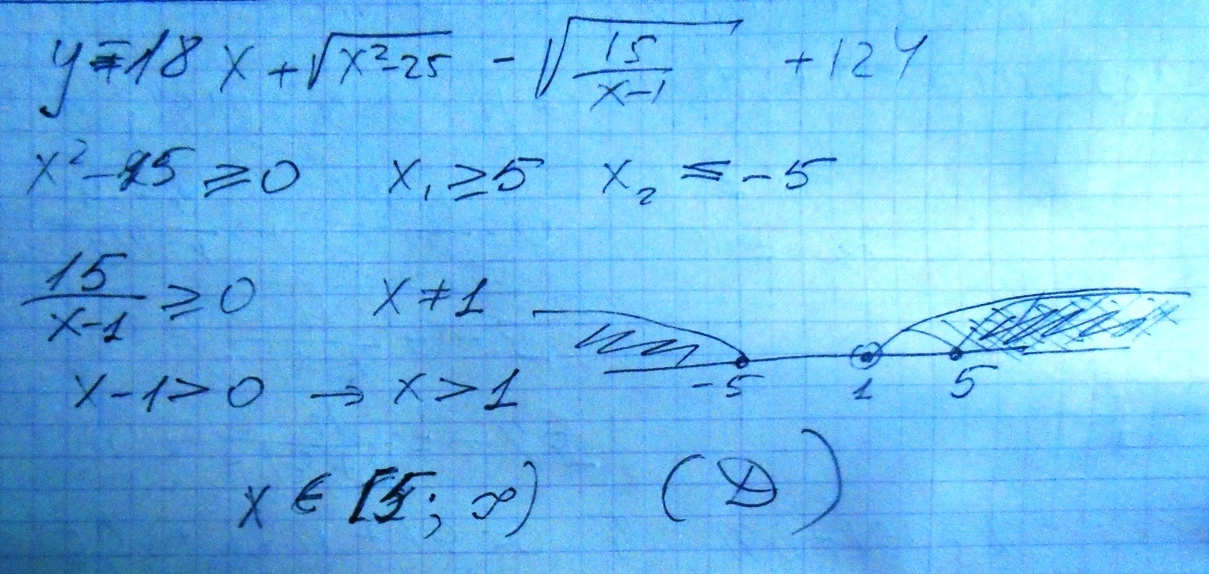 y = 18x + √(x²-25) - √(15/(x-1)) + 124
x² - 25 ≥ 0 x₁ ≥ 5 x₂ ≤ -5
15/(x-1) ≥ 0 x ≠ 1
x - 1 > 0 → x > 1
-5 1 5
x ∈ [5; ∞) (D)